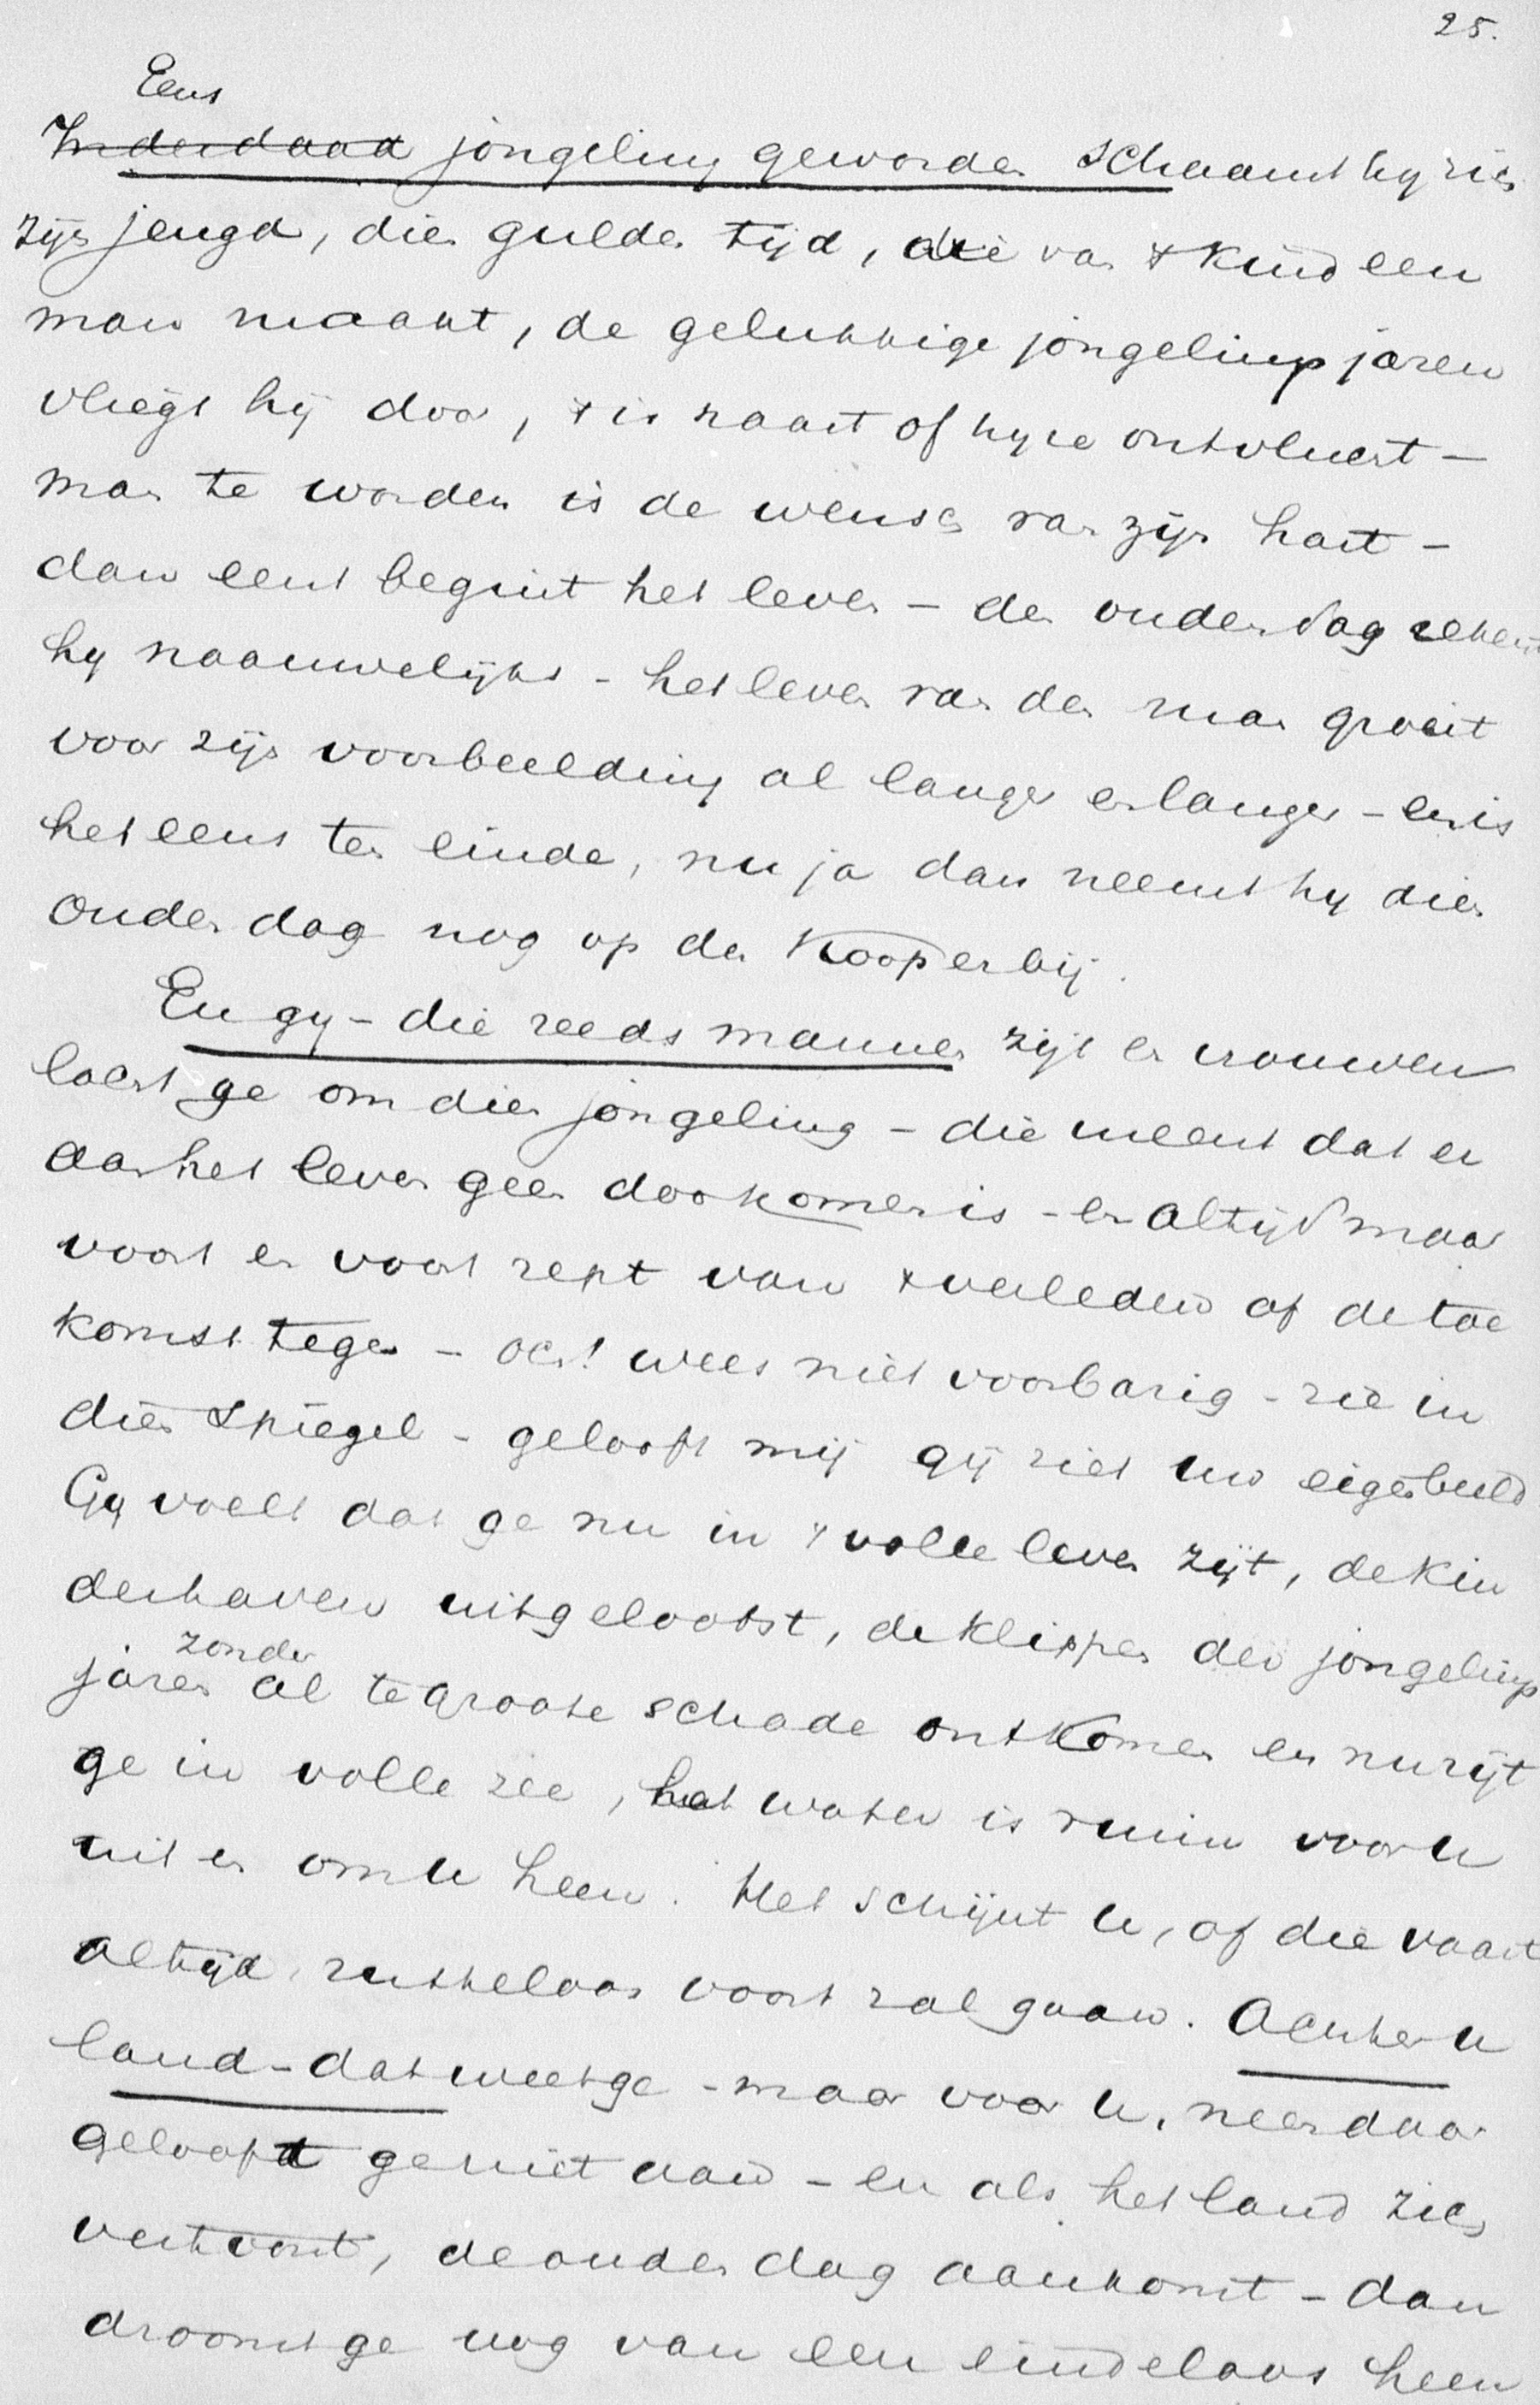 25.
Eens
Inderdaad jongeling geworden schaamt hy zich
zijn jeugd, dien gulden tijd, die van 't kind een
man maakt, de gelukkige jongelingsjaren
vliegt hij door, 't is haast of hy ze ontvlucht –
man te worden is de wensch van zijn hart –
dan eerst begint het leven – den ouden dag rekent
hy naauwelijks – het leven van den man groeit
voor zijn voorbeelding al langer en langer – en is
het eens ten einde, nu ja dan neemt hy dien
ouden dag nog op den koop er bij.
En gy – die reeds mannen zijt en vrouwen
lacht ge om dien jongeling – die meent dat er
aan het leven geen doorkomen is – en altijd maar
voort en voort rent van 't verleden af de toe
komst tegen – och! wees niet voorbarig – zie in
dien spiegel – gelooft mij gij ziet uw eigen beeld
Gy voelt dat ge nu in 't volle leven zijt, de kin
derhaven uitgeloodst, de klippen der jongelings
zonder
jaren al te groote schade ontkomen en nu zijt
ge in volle zee, het water is ruim voor u
uit en om u heen. Het schijnt u, of die vaart
altijd, rusteloos voort zal gaan. Achter u
land – dat weet ge – maar voor u, neen daar
gelooft ge niet aan – en als het land zich
vertoont, de oude dag aankomt – dan
droomt ge nog van een eindeloos heen